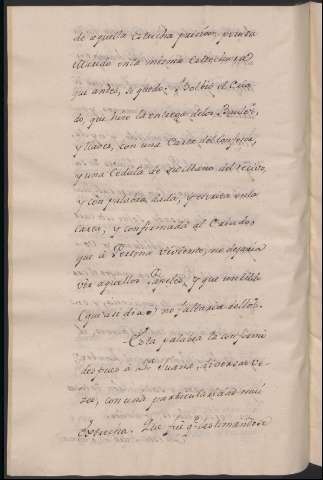 de aquella estrecha prision, 
en la misma estrechez, 
que antes, se quedo. Bolbio el Cria-
do, que hizo la entrega delos Baules,
y llaves, con una Carta del Confesor,
y una Cedula de del recivo,
y con palabra dada, y escrita enla
carta, y confirmada al Criado,
que à Persona viviente, no dejaria
ver aquellos Papeles, y que un 
(que asi dixo) no faltaria dellos.
Esta palabra la confirmò
despues à Dª Juana, diversas ve-
zes, con una particularidad mui
estrecha. Que fue q. estimandose